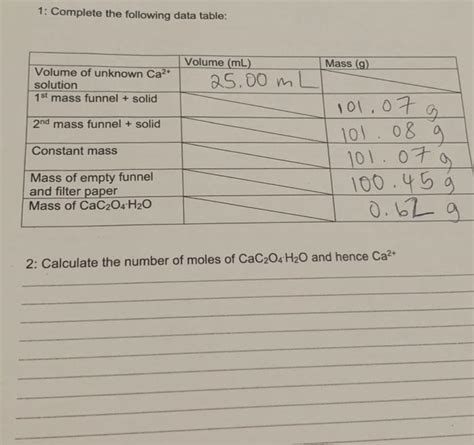 1: Complete the following data table:
Volume (mL) Mass (g)
Volume of unknown Ca²⁺ solution 25.00 mL
1st mass funnel + solid 101.07 g
2nd mass funnel + solid 101.08 g
Constant mass 101.07 g
Mass of empty funnel and filter paper 100.45 g
Mass of CaC₂O₄·H₂O 0.62 g
2: Calculate the number of moles of CaC₂O₄ H₂O and hence Ca²⁺